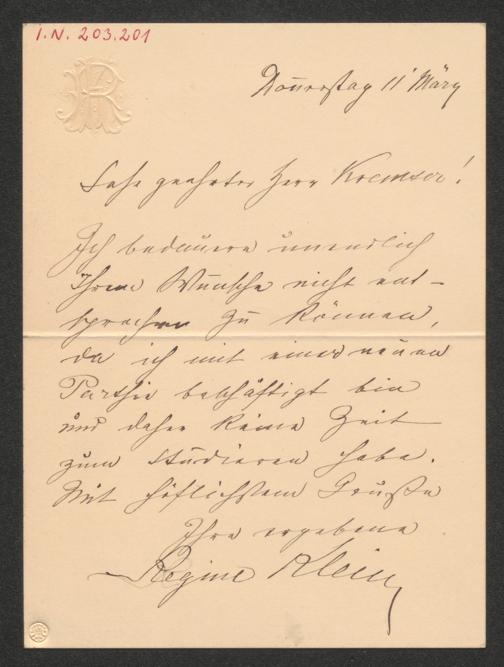 I.N. 203.201
RK
Donnerstag 11' März
Sehr geehrter Herr Kremser!
Ich bedauere unendlich
Ihrem Wunsche nicht ent-
sprechen zu können,
da ich mit einer neuen
Parthie beschäftigt bin
und daher keine Zeit
zum studieren habe.
Mit höflichstem Gruße
Ihre ergebene
Regine Klein